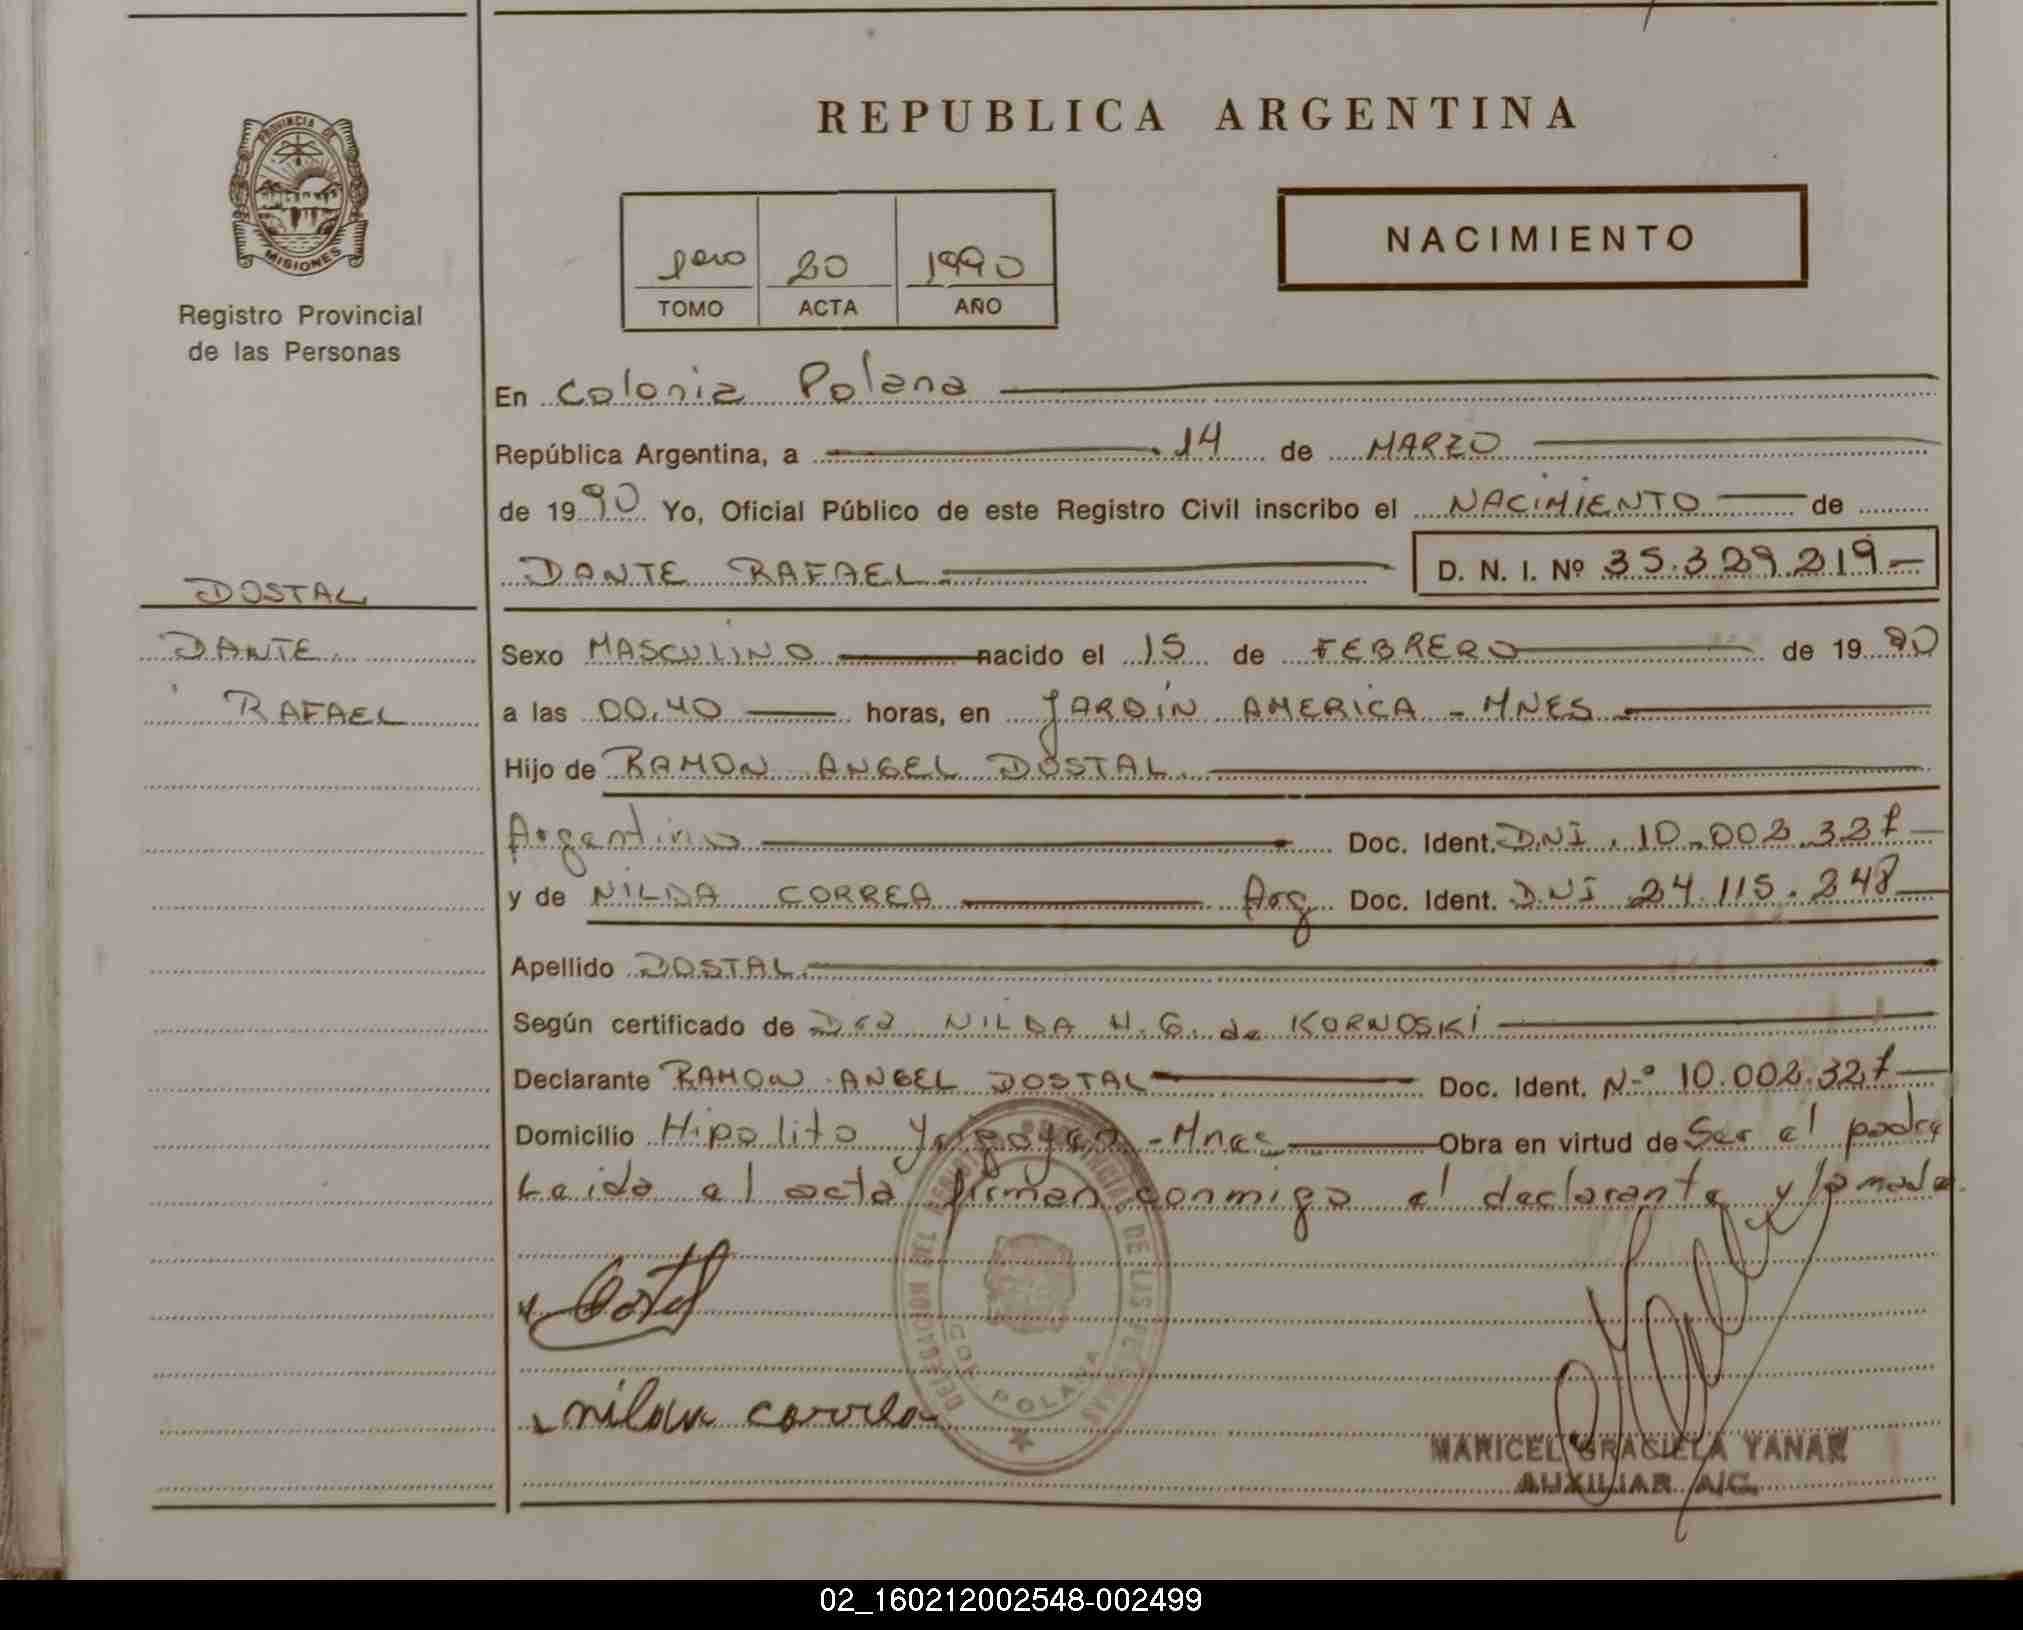 REPUBLICA ARGENTINA
PROVINCIA DE
MISIONES
Registro Provincial
de las Personas
1ero 20 1990
TOMO ACTA AÑO
NACIMIENTO
En Colonia Polana
República Argentina, a 14 de MARZO
de 1990 Yo, Oficial Público de este Registro Civil inscribo el NACIMIENTO de
DANTE RAFAEL D. N. I. Nº 35.329.219
DOSTAL
DANTE
RAFAEL
Sexo MASCULINO nacido el 15 de FEBRERO de 1990
a las 00,40 horas, en JARDIN AMERICA - MNES
Hijo de RAMON ANGEL DOSTAL
Argentino Doc. Ident. DNI. 10.002.327
y de NILDA CORREA Arg Doc. Ident. DNI 24.115.248
Apellido DOSTAL
Según certificado de Dra NILDA H. G. de KORNOSKI
Declarante RAMON ANGEL DOSTAL Doc. Ident. Nº 10.002.327
Domicilio Hipolito Yrigoyen - Mnes Obra en virtud de Ser el padre
Leida el acta firman conmigo el declarante y la madre.
DELEGACION DEL REGISTRO PROVINCIAL DE LAS PERSONAS
COL. POLANA
Dostal
nilda correa
MARICEL GRACIELA YANAK
AUXILIAR A/C.
02_160212002548-002499